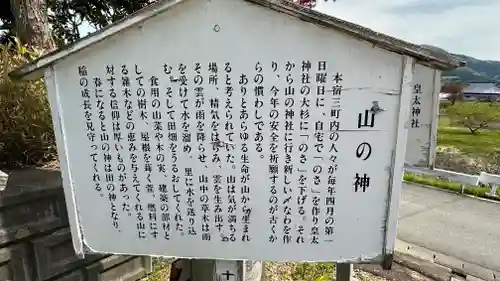 山の神
本宿三町内の人々が毎年四月の第一
日曜日に、自宅で「のさ」を作り皇太
神社の大杉に「のさ」を下げる。それ
から山の神社に行き新しい〆なわを作
り、今年の安全を祈願するのが古くか
らの慣わしである。
ありとあらゆる生命が山から生まれ
ると考えられていた。山は気が満ちる
場所、精気をはき、雲を生み出す。
その雲が雨を降らせ、山中の草木は雨
を受けて水を溜め、里に水を送り込
む。そして田畑をうるおしてくれた。
食用の山菜や木の実、建築の部材と
しての樹木、屋根を葺く萱、燃料にす
る雑木などの恵みを与えてくれる山に
対する信仰は厚いものがあった。
春になると山の神は田の神となり、
稲の成長を見守ってくれる。
皇太神社